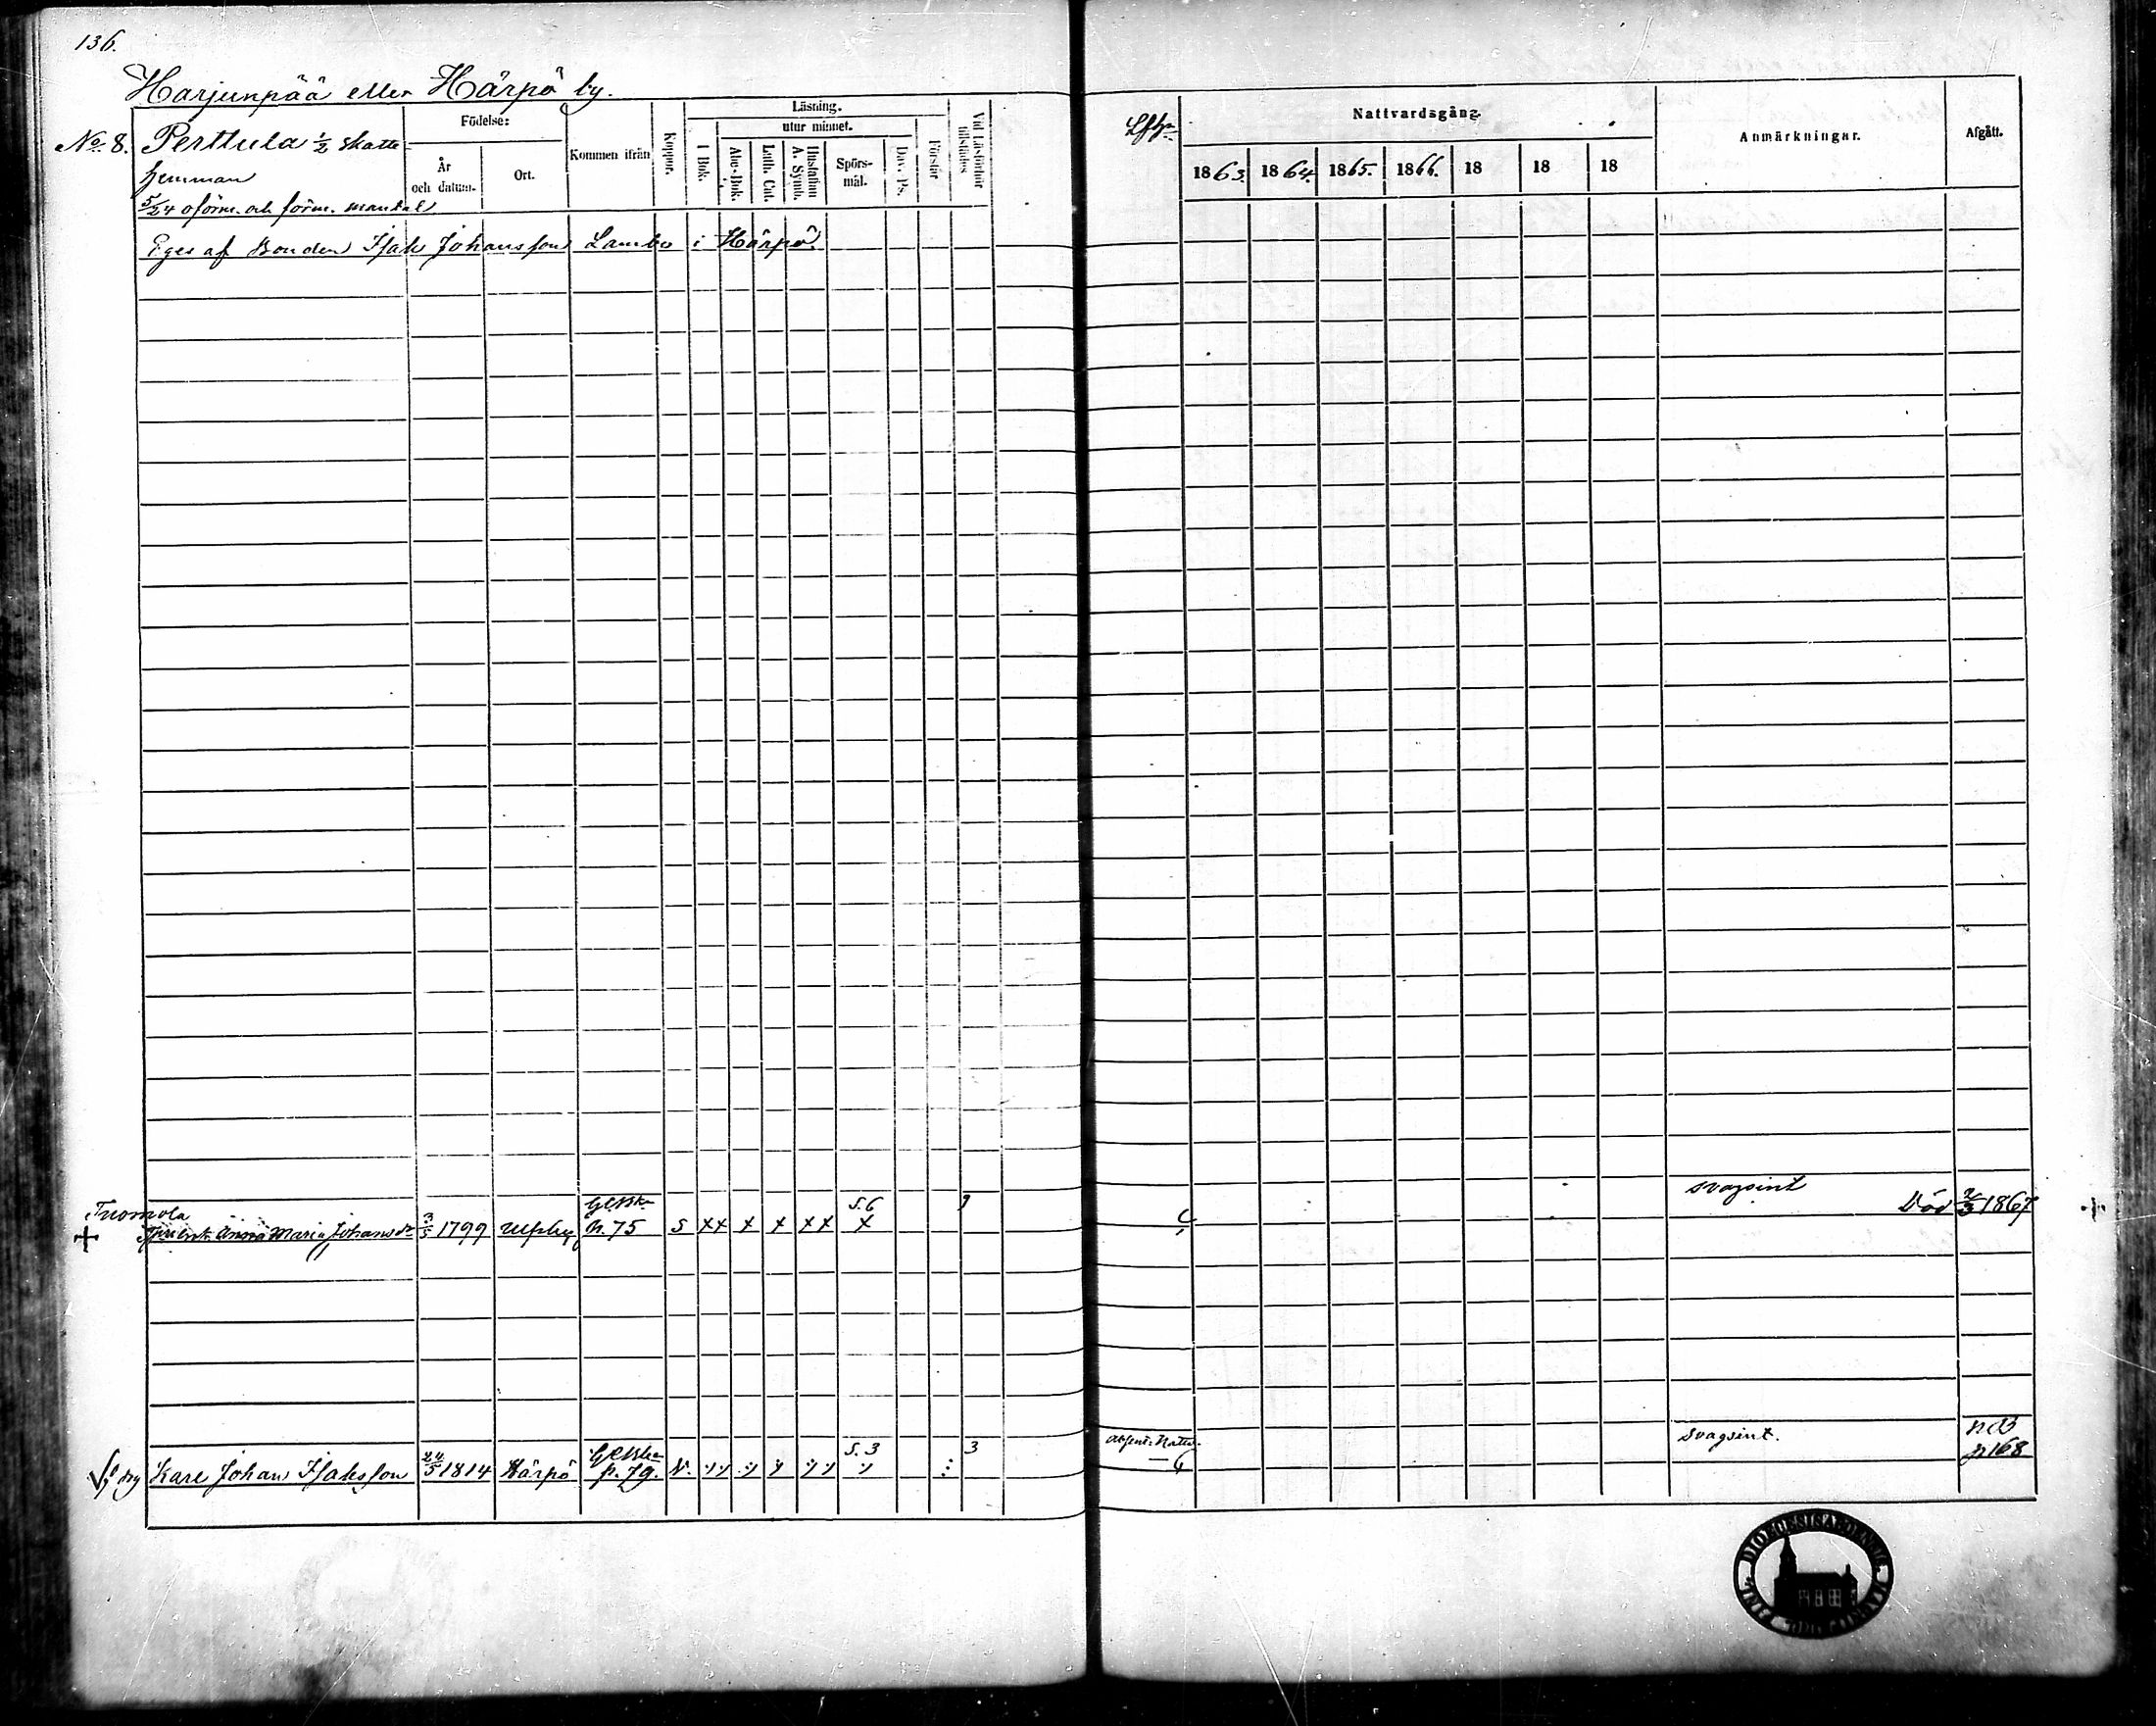 136.
Harjunpää eller Härpö by.
No 8. Perttula 1/2 skatte
hemman
5/24 oförm. och förm. mantal
Eges af Bonden Isak Johansson Lambo i Härpö.
Födelse:
År och datum.
Ort.
Kommen ifrån
Koppor.
Läsning.
I Bok.
utur minnet.
Abc-Bok.
Luth. Cat.
Hustaflan A. Symb.
Spörsmål.
Dav. Ps.
Förstår
Vid Läsförhör tillstädes
Nattvardsgång.
1863. 1864. 1865. 1866. 18 18 18
Anmärkningar.
Afgått.
Tuomola
Anna Maria Johansdr 3/5 1799 Ulfsby N. 75 S xx x x xx S.6 x
svagsint
Död 1867
Karl Johan Isaksson 24/5 1814 Härpö p. 79. N. S. 3 3
svagsint.
p 168